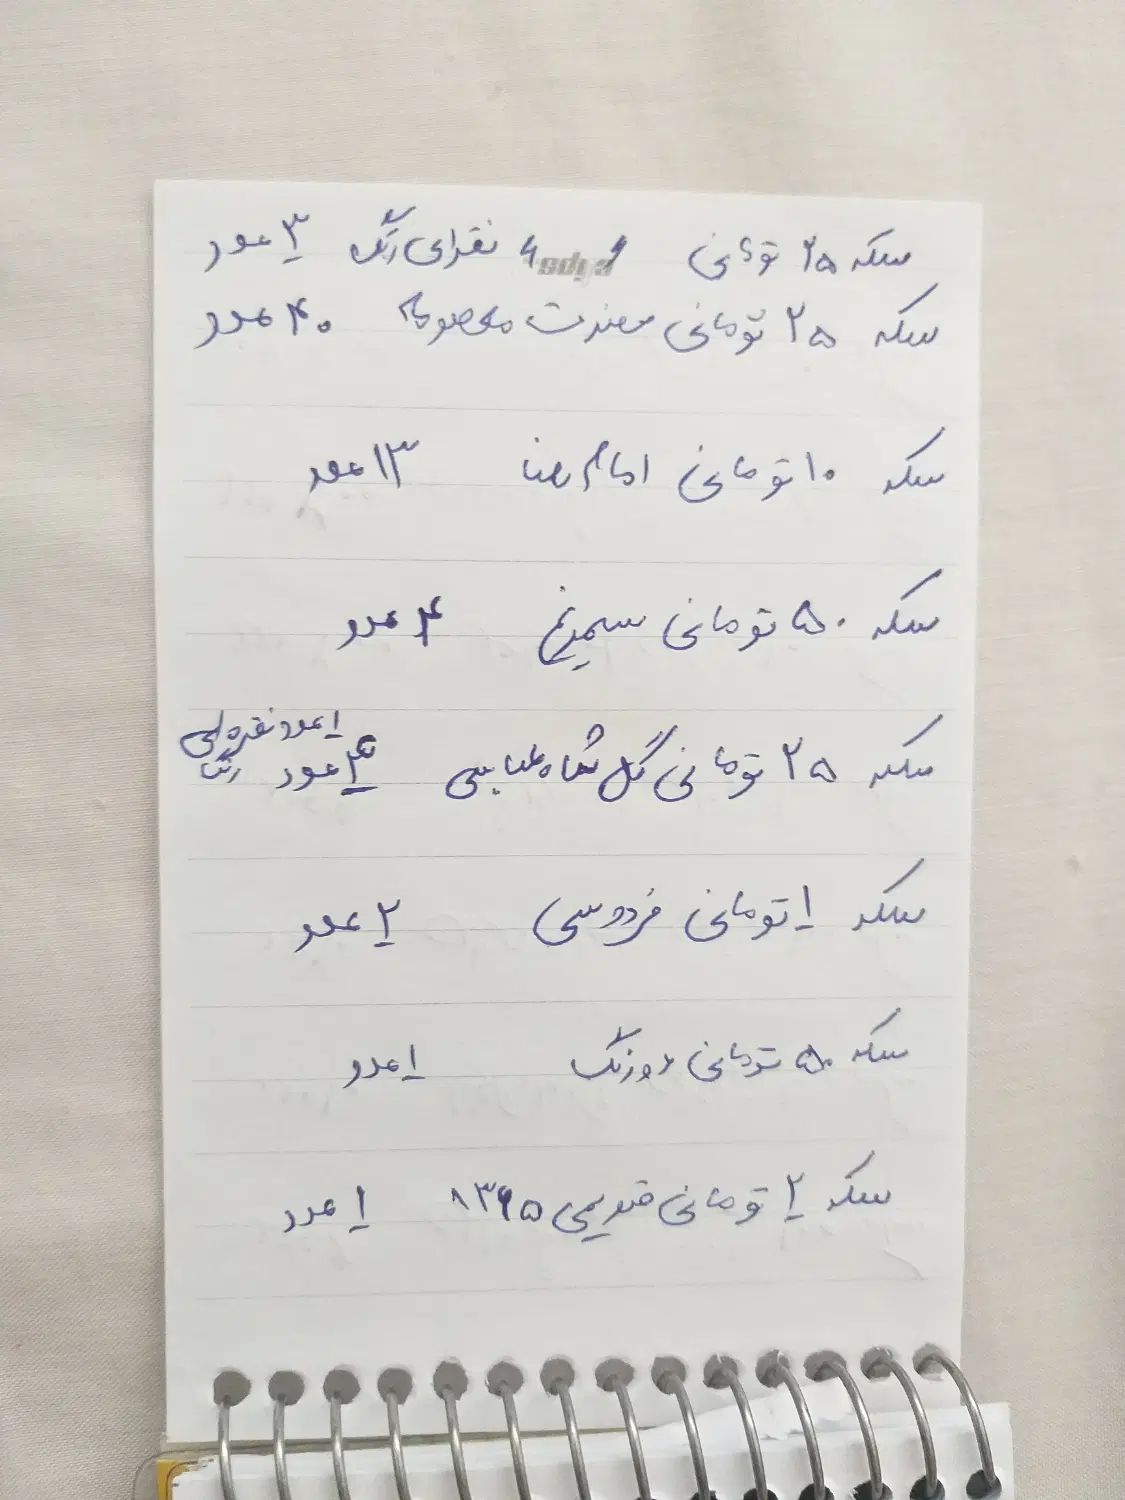 سکه ۲۵ تومانی نقرای رنگ ۳ عدد
سکه ۲۵ تومانی حضرت معصومه ۴۰ عدد
سکه ۱۰ تومانی امام رضا ۱۳ عدد
سکه ۵۰ تومانی سیمرغ ۴ عدد
۱ عدد نقره ای
سکه ۲۵ تومانی گل شاه عباسی عدد رنگ
سکه ۱ تومانی فردوسی ۲ عدد
سکه ۵۰ تومانی دورنگ ۱ عدد
سکه ۲ تومانی قدیمی ۱ عدد